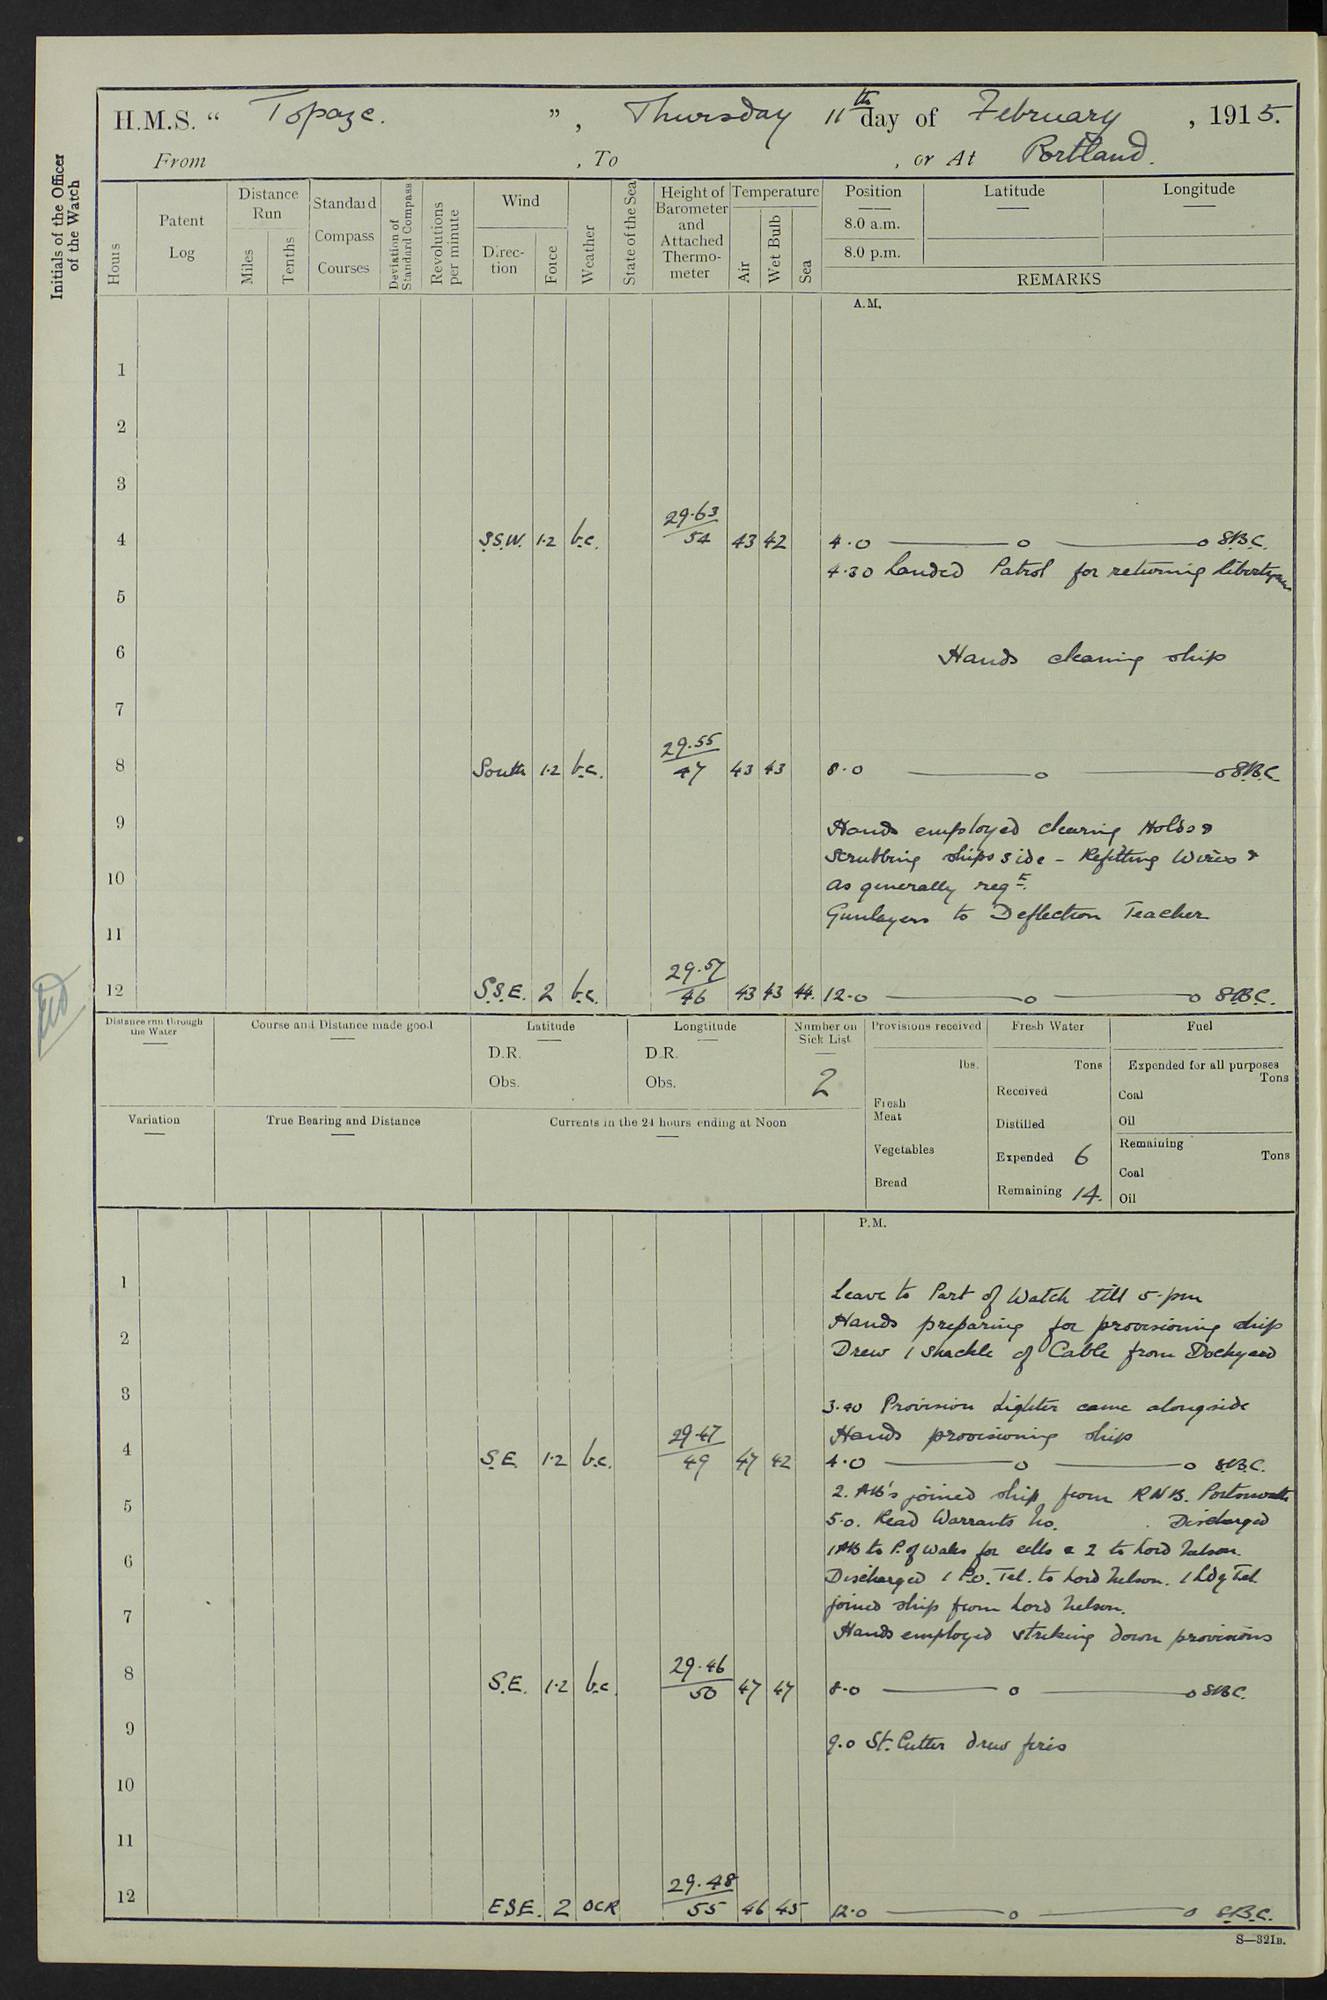 H.M.S. “ Topaze. ” , Thursday 11th day of February , 1915.
From , To , or At Portland.
Initials of the Officer of the Watch
Hours
Patent Log
Distance Run
Miles
Tenths
Standard Compass Courses
Deviation of Standard Compass
Revolutions per minute
Wind
Direc-tion
Force
Weather
State of the Sea
Height of Barometer and Attached Thermo-meter
Temperature
Air
Wet Bulb
Sea
Position
Latitude
Longitude
8.0 a.m.
8.0 p.m.
REMARKS
A.M.
1
2
3
4 S.S.W. 1·2 b.c. 29·63/54 43 42 4·0 o o S.B.C.
4·30 Landed Patrol for returning libertymen
5
6 Hands cleaning ship
7
8 South 1·2 b.c. 29·55/47 43 43 8·0 o o S.B.C
9 Hands employed clearing Holds &
Scrubbing ships side – Refitting Wires &
10 as generally reqd.
Gunlayers to Deflection Teacher
11
12 S.S.E. 2 b.c. 29·57/46 43 43 44. 12·0 o o S.B.C.
Distance run through the Water
Course and Distance made good
Latitude
D.R.
Obs.
Longtitude
D.R.
Obs.
Number on Sick List
2
Provisions received
lbs.
Fresh Meat
Vegetables
Bread
Fresh Water
Tons
Received
Distilled
Expended 6
Remaining 14.
Fuel
Expended for all purposes
Tons
Coal
Oil
Remaining
Tons
Coal
Oil
Variation
True Bearing and Distance
Currents in the 24 hours ending at Noon
P.M.
1 Leave to Part of Watch till 5·pm
Hands preparing for provisioning ship
2 Drew 1 Shackle of Cable from Dockyard
3 3·40 Provision Lighter came alongside
Hands provisioning ship
4 S.E. 1·2 b.c. 29·47/49 47 42 4·0 o o S.B.C.
2. AB's joined ship from RNB. Portsmouth
5 5·0. Read Warrants No. . Discharged
6 1 AB to P. of Wales for cells & 2 to Lord Nelson.
Discharged 1 P.O. Tel. to Lord Nelson. 1 Ldg Tel
7 joined ship from Lord Nelson.
Hands employed striking down provisions
8 S.E. 1·2 b.c. 29·46/50 47 47 8·0 o o SBC.
9 9·0 St. Cutter drew fires
10
11
12 ESE. 2 OCR 29·48/55 46 45 12·0 o o S.B.C.
S—321B.